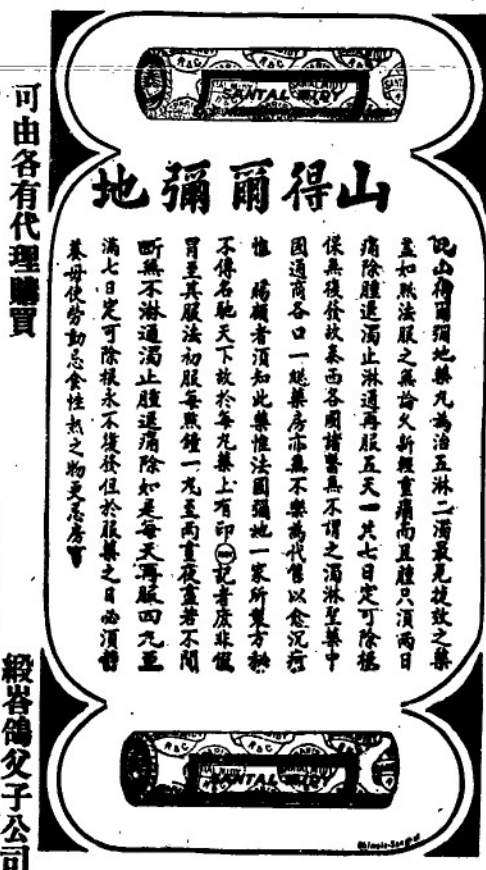 SANTAL MIDY
山得爾彌地
山得爾彌地藥丸為治五淋二濁最見捷效之藥
盖如照法服之無論久新輕重痛而且腫只須兩日
痛除腫退濁止淋通再服五天一共七日定可除根
保無後發故泰西各國諸醫無不謂之濁淋聖藥中
國通商各口一總藥房亦無不樂為代售以愈沉疴
惟 賜顧者須知此藥惟法國彌地一家所製方秘
不傳名馳天下故於每丸藥上有印記者庶非假
冒至其服法初服每點鐘一丸至兩晝夜盡若不間
斷無不淋通濁止腫退痛除如是每天再服四丸至
滿七日定可除根永不復發但於服藥之日必須靜
養毋使勞動忌食性熱之物更忌房
SANTAL MIDY
可由各有代理購買
緞峇鴿父子公司